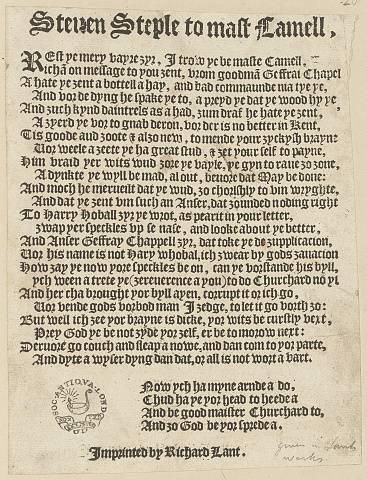 Steven Steple to mast Camell.
REst ye mery vayre zyr, I trow ye be maste Camell,
Ich am on message to you zent, vrom goodmā Geffrai Chapel
A hate ye zent a bottell a hay, and bad commaunde nia tye ye,
And vor de dyng he spake ye to, a preyd ye dat ye wood hy ye
And zuch kynd daintrels as a had, zum draf he hate ye zent,
A zyerd ye vor to gnab deron, vor der is no better in Kent,
Tis goode aud zoote & alzo new, to mende your zyckysh brayne
Vor weele a zeete ye ha great stud, & zet your self to payne,
Him vraid yer wits wud zore ye vayle, ye gyn to raue zo zone,
A dynkte ye wyll be mad, al out, bevore dat May be done:
And moch he merueild dat ye wud, zo chorlishly to him wryghte,
And dat ye zent him such an Anser, dat zounded noding right
To Harry Hoball zyr ye wrot, as pearit in your letter,
zwap yer speckles vp se nase, and looke about ye better,
And Anser Geffray Chappell zyr, dat toke ye de zupplication,
Vor his name is not Hary whobal, ich zwear by gods zauacion
How zay ye now yore speckles be on, can ye vorstande his byll,
ych ween a trete ye (zereuerence a you) to do Churchard no yl
And her cha brought yor byll ayen, corrupt it or ich go,
Vor vende gods vorbod man I zedge, to let it go vorth zo:
But well ich zee yor brayne is dicke, yor wits be curstly vext,
Prey God ye be not zyde yor zelf, er be to morow next:
Dervore go touch and sleap a nowe, and dan com to yor parte,
And dyte a wyser dyng dan dat, or all is not wort a vart.
Now ych ha myne arnde a do,
Chud ha ye yor head to heede a
And be good maister Churchard to,
And zo God be yor sprede a.
SOC · ANTIQVA · LOND
Imprinted by Richard Lant.
given in
works